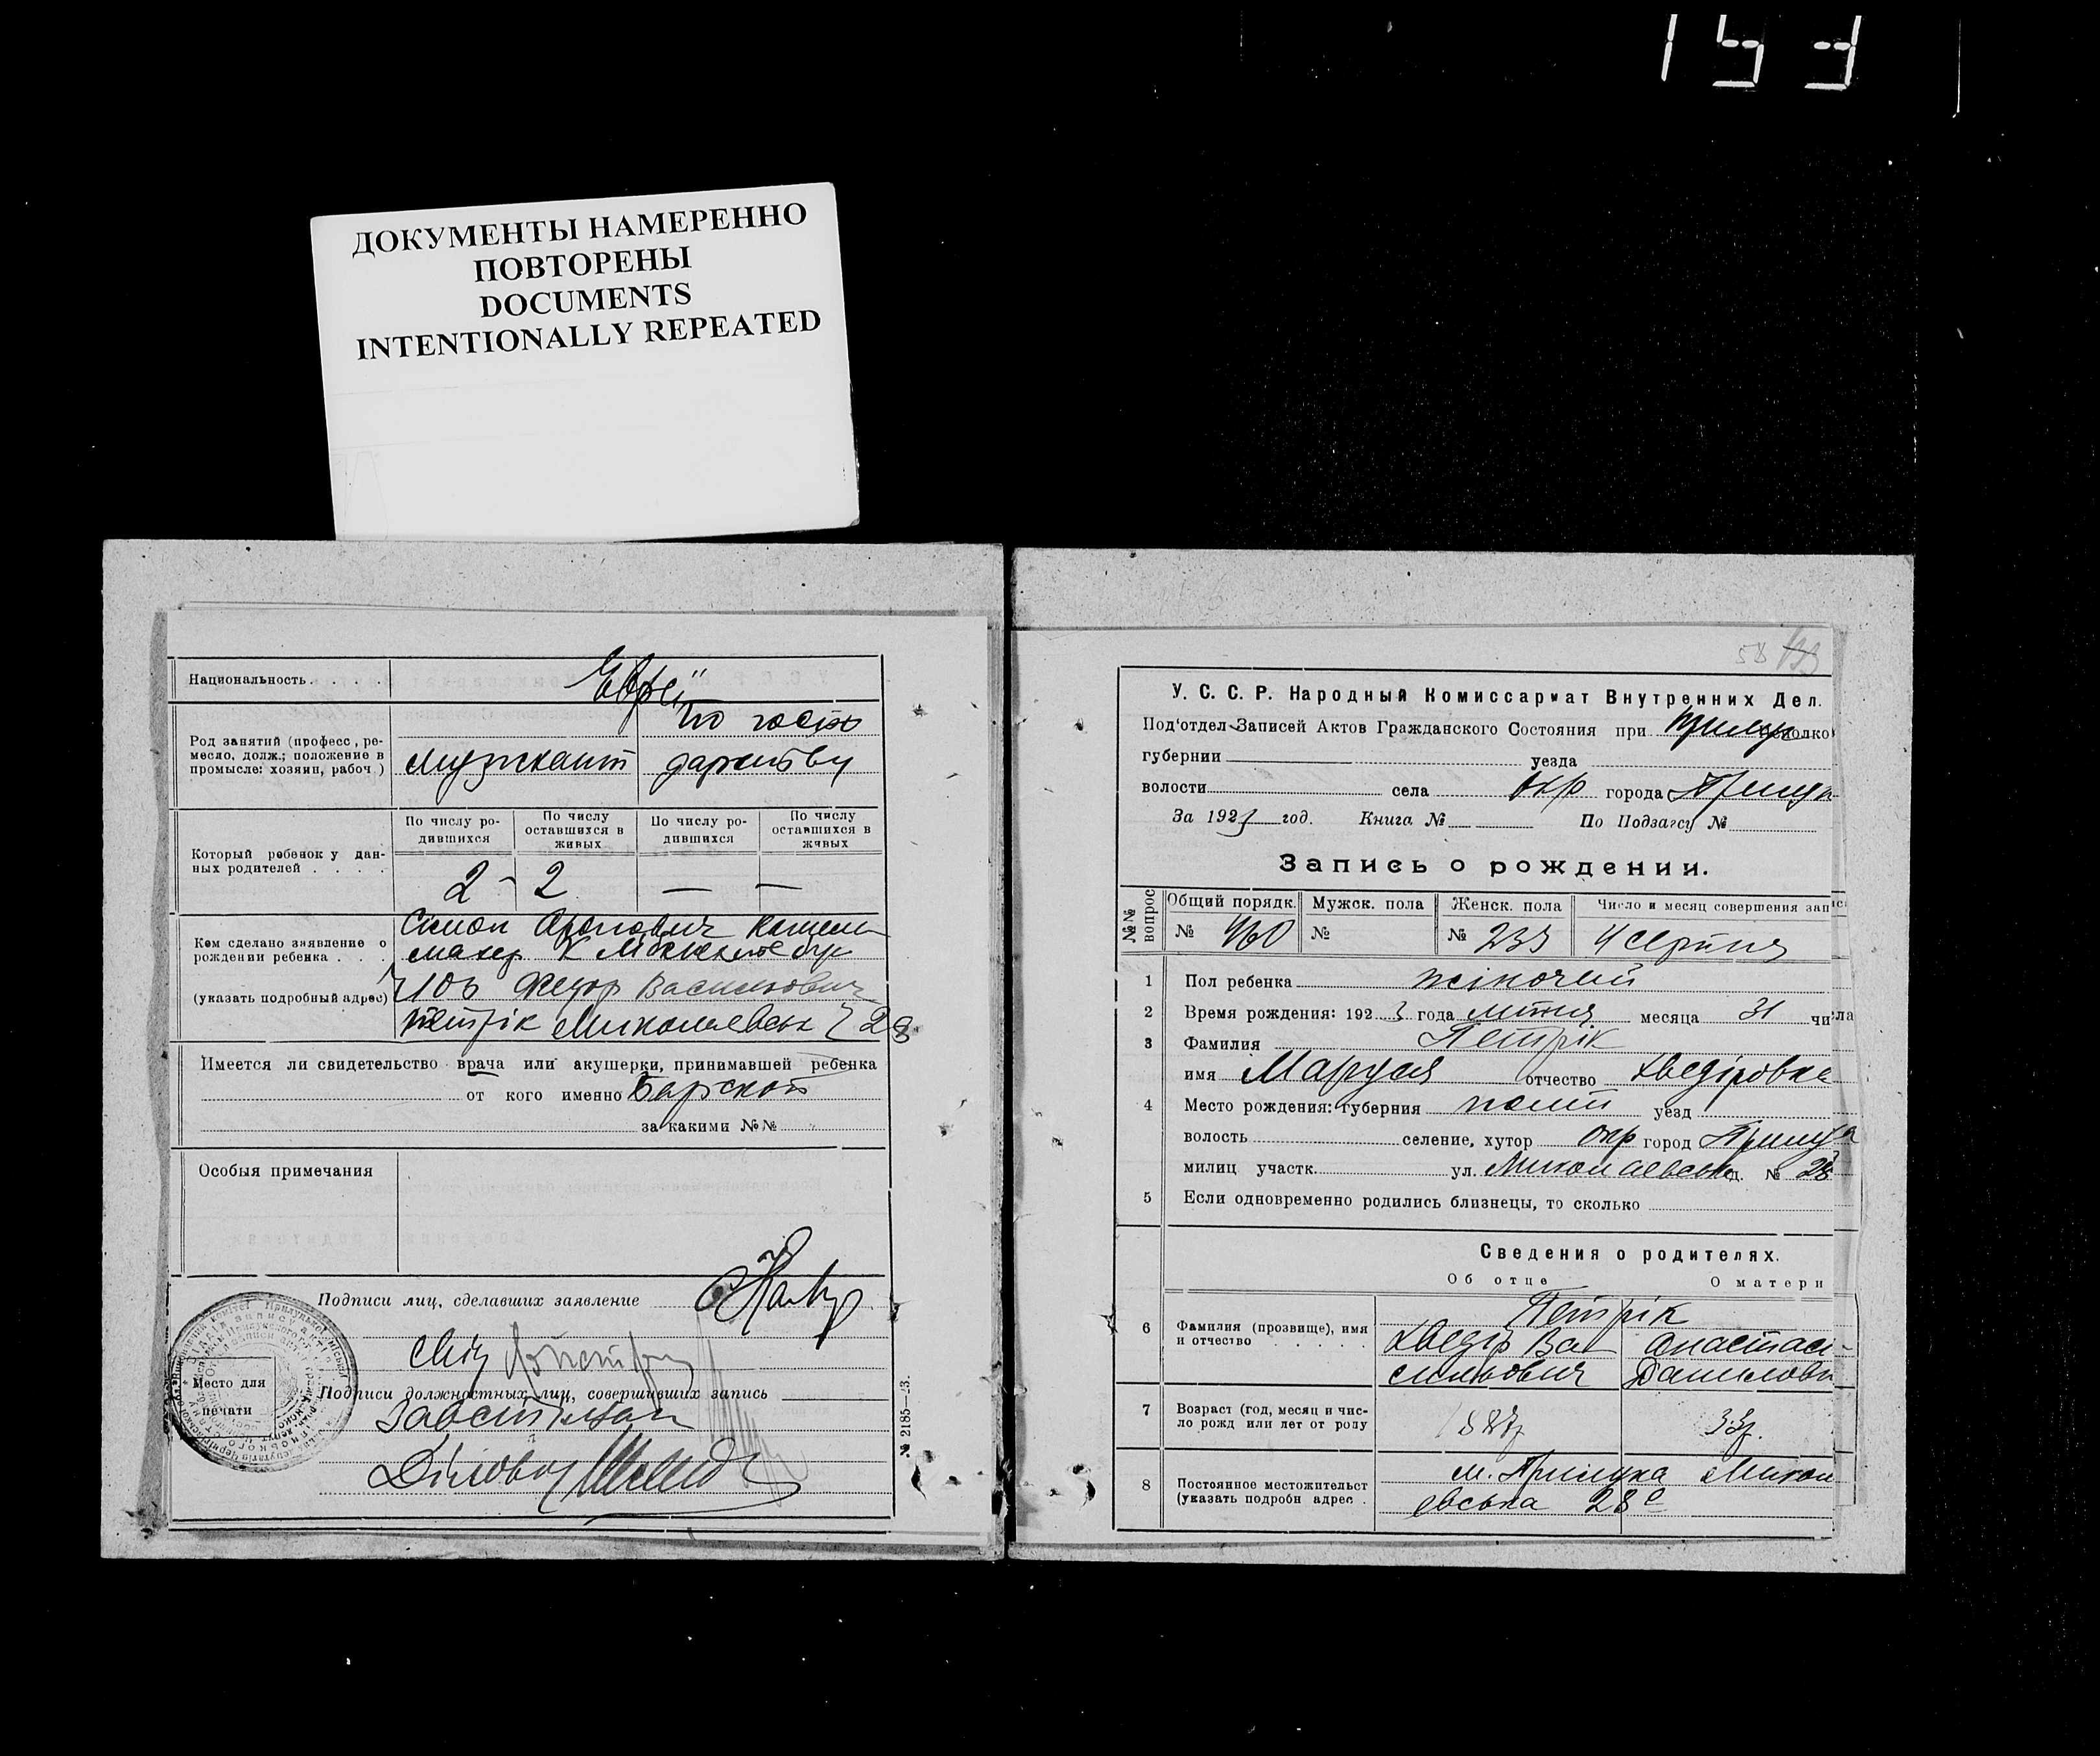 153
ДОКУМЕНТЫ НАМЕРЕННО
ПОВТОРЕНЫ
DOCUMENTS
INTENTIONALLY REPEATED
Национальность . . . . Еврей
Род занятий (професс, ре-
месло, долж.; положение в
промысле: хозяин, рабоч)
музикант
по госпо
дарству
Который ребенок у дан-
ных родителей . . . .
По числу ро-
дившихся
По числу
оставшихся в
живых
По числу ро-
дившихся
По числу
оставшихся в
живых
2 - 2 — —
Кем сделано заявление о
рождении ребенка . . .
(указать подробный адрес)
Симон Аронович
махер К
106 Федор Васильович
Петрік Миколаевськ 28
Имеется ли свидетельство врача или акушерки, принимавшей ребенка
от кого именно Барской
за какими №№
Особыя примечания
Подписи лиц, сделавших заявление
Подписи должностных лиц, совершивших запись
Место для
печати
Діловод
№ 2185—23.
58
У. С. С. Р. Народный Комиссариат Внутренних Дел.
Под'отдел Записей Актов Гражданского Состояния при
губернии уезда
волости села окр города Прилук
За 1923 год. Книга № По Подзагсу №
Запись о рождении.
№№ вопрос
Общий порядк. Мужск. пола Женск. пола Число и месяц совершения записи
№ 460 № № 239 4 серпня
1 Пол ребенка жіночий
2 Время рождения: 1923 года липня месяца 31 числа
3 Фамилия Петрік
имя Маруся отчество Хведіровна
4 Место рождения: губерния полт уезд
волость селение, хутор окр город Прилука
милиц участк. ул. Миколаевська д. № 28
5 Если одновременно родились близнецы, то сколько
Сведения о родителях.
Об отце О матери
6 Фамилия (прозвище), имя
и отчество . . . . .
Петрік
Хведір Ва
сильович
Анастаси-
Даниловн
7 Возраст (год, месяц и чис-
ло рожд или лет от роду
1887 33р.
8 Постоянное местожительст
(указать подробн адрес .
м. Прилука Микол
евська 28